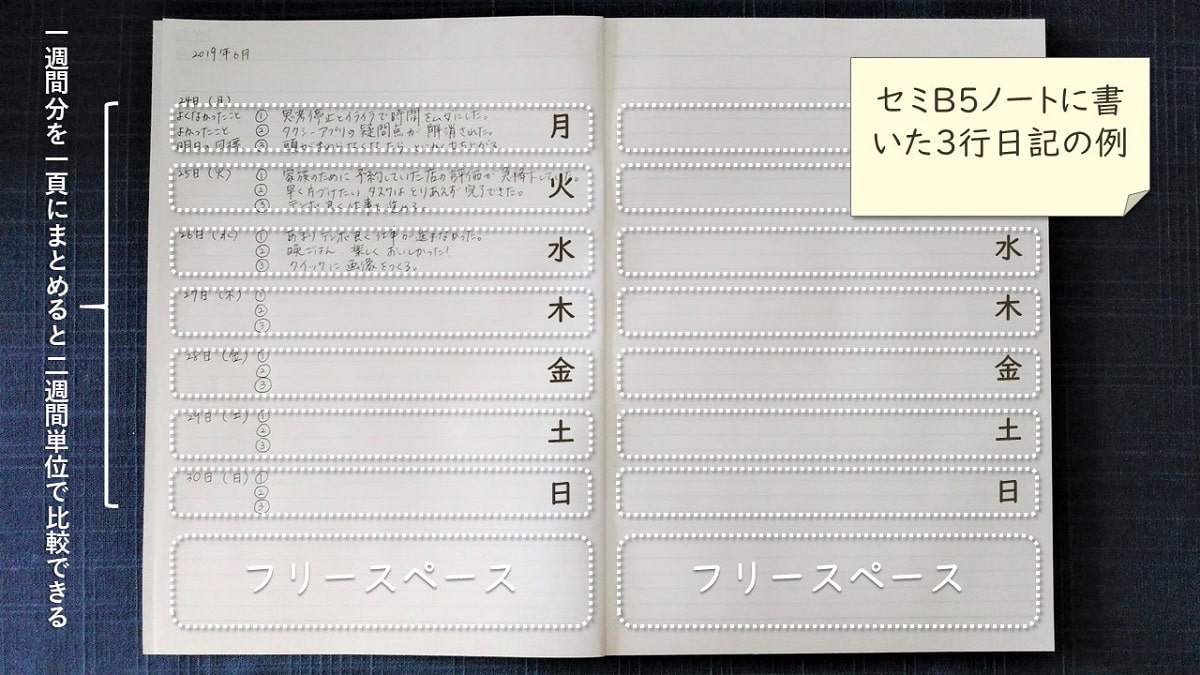 一週間分を一頁にまとめると二週間単位で比較できる
セミB5ノートに書
いた3行日記の例
2019年6月
24日(月)
よくなかったこと ① 思考停止とイライラで時間をムダにした。
よかったこと ② タクシーアプリの疑問点が解消された。
明日の目標 ③ 頭がまわらなくなったら、
月
25日(火) ① 家族のために予約していた店の評価が
② 早く片づけたいタスクはとりあえず完了できた。
③ テンポ良く仕事を進める。
火
26日(水) ① あまりテンポ良く仕事が進まなかった。
② 晩ごはん 楽しくおいしかった!
③ クイックに画像をつくる。
水
27日(木) ①
②
③
木
28日(金) ①
②
③
金
29日(土) ①
②
③
土
30日(日) ①
②
③
日
フリースペース
水
木
金
土
日
フリースペース